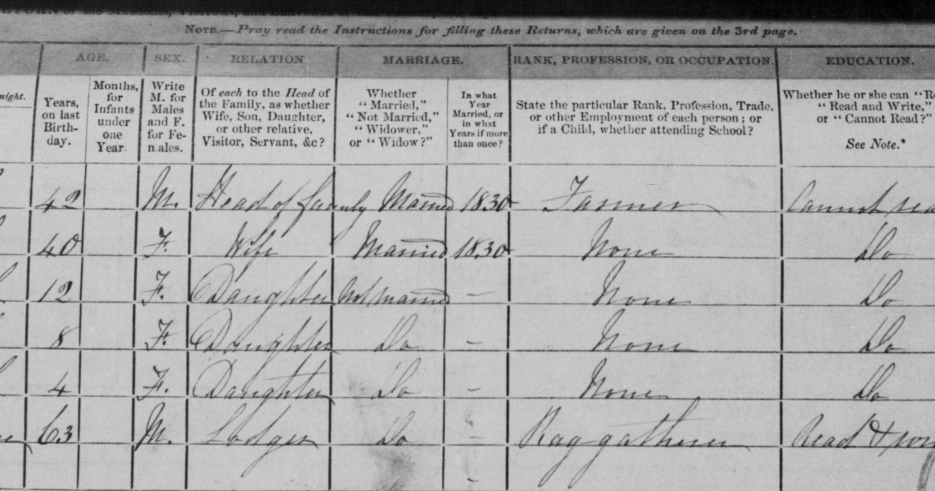 NOTE.—Pray read the Instructions for filling these Returns, which are given on the 3rd page.
AGE. SEX. RELATION MARRIAGE. RANK, PROFESSION, OR OCCUPATION. EDUCATION.
night.
Years, on last Birth-day.
Months, for Infants under one Year.
Write M. for Males and F. for Fe-males.
Of each to the Head of the Family, as whether Wife, Son, Daughter, or other relative, Visitor, Servant, &c?
Whether "Married," "Not Married," "Widower," or "Widow?"
In what Year Married, or in what Years if more than once?
State the particular Rank, Profession, Trade, or other Employment of each person; or if a Child, whether attending School?
Whether he or she can "Re
"Read and Write,"
or "Cannot Read?"
See Note.*
42 M. Head of family Married 1830 Farmer Cannot rea
40 F. Wife Married 1830 None Do
12 F. Daughter Not married – None Do
8 F. Daughter Do – None Do
4 F. Daughter Do – None Do
63 M. Lodger Do – Raggatherer Read & wri
–